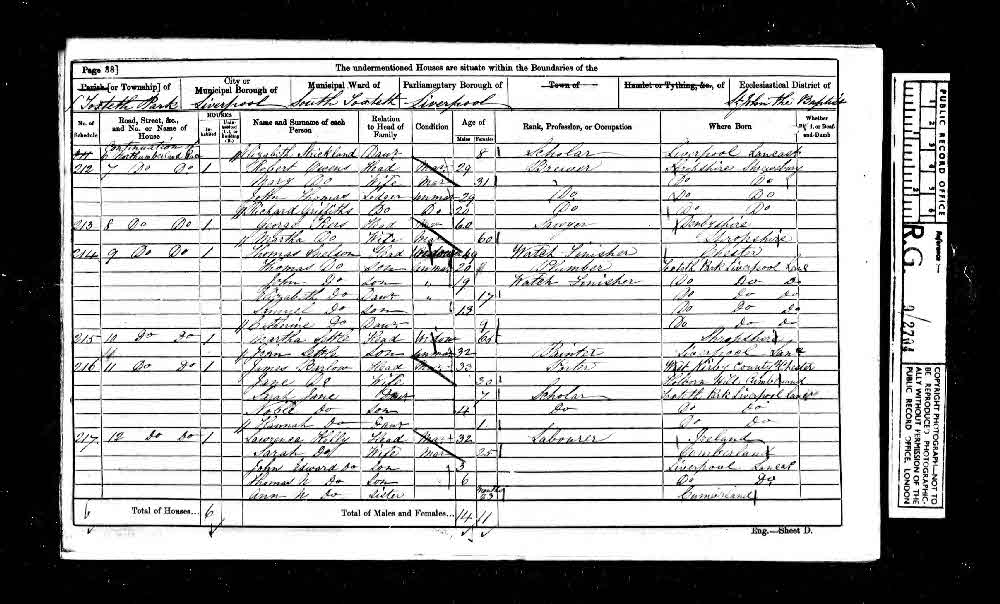 Page 38]
The undermentioned Houses are situate within the Boundaries of the
Parish [or Township] of
City or Municipal Borough of
Municipal Ward of
Parliamentary Borough of
Town of
Hamlet or Tything, &c., of
Ecclesiastical District of
Toxteth Park
Liverpool
South Toxteth
Liverpool
St John the Baptist
No. of Schedule
Road, Street, &c., and No. or Name of House
HOUSES
Inhabited
Name and Surname of each Person
Relation to Head of Family
Condition
Age of
Males
Females
Rank, Profession, or Occupation
Where Born
Whether Blind, or Deaf-and-Dumb
Continuation of
6 Northumberland Elizabeth Strickland Daur 8 Scholar Liverpool Lancash
212 7 Do Do 1 Robert Owens Head Mar 29 Brewer Shropshire Shrewsbury
Mary Do Wife Mar 31 Do Do
John Thomas Lodger unmar 29 Do Do Do
Richard Griffiths Do Do 20 Do Do Do
213 8 Do Do 1 George Head Mar 60 Sawyer Derbyshire
Martha Do Wife Mar 60 Shropshire
214 9 Do Do 1 Thomas Head Widower 49 Watch Finisher Chester
Thomas Do Son unmar 20 Plumber Toxteth Park Liverpool Lanc
John Do Son " 19 Watch Finisher Do Do Do
Elizabeth Do Daur " 17 Do Do Do
Samuel Do Son 13 Do Do Do
Catherine Do Daur 9 Do Do Do
215 10 Do Do 1 Martha Head Widow Shropshire
John Son unmar 32 Painter Liverpool Lanc
216 11 Do Do 1 James Head Mar 33 West Kirby County Chester
Jane Do Wife 30 Cumberland
Sarah Jane Daur 7 Scholar Toxteth Park Liverpool Lanc
Noble Do Son 4 Do Do Do
Hannah Do Daur 1 Do Do
217 12 Do Do 1 Lawrence Kelly Head Mar 32 Labourer Ireland
Sarah Do Wife Mar 25 Cumberland
John Edward Do Son 3 Liverpool Lancas
Thomas H Do Son 6 Do Do
Ann N Do Sister 23 Cumberland
6 Total of Houses... 6
Total of Males and Females... 14 11
Eng.—Sheet D.
PUBLIC RECORD OFFICE
Reference:-
R.G. 9/2704
COPYRIGHT PHOTOGRAPH—NOT TO
BE REPRODUCED PHOTOGRAPHIC-
ALLY WITHOUT PERMISSION OF THE
PUBLIC RECORD OFFICE, LONDON